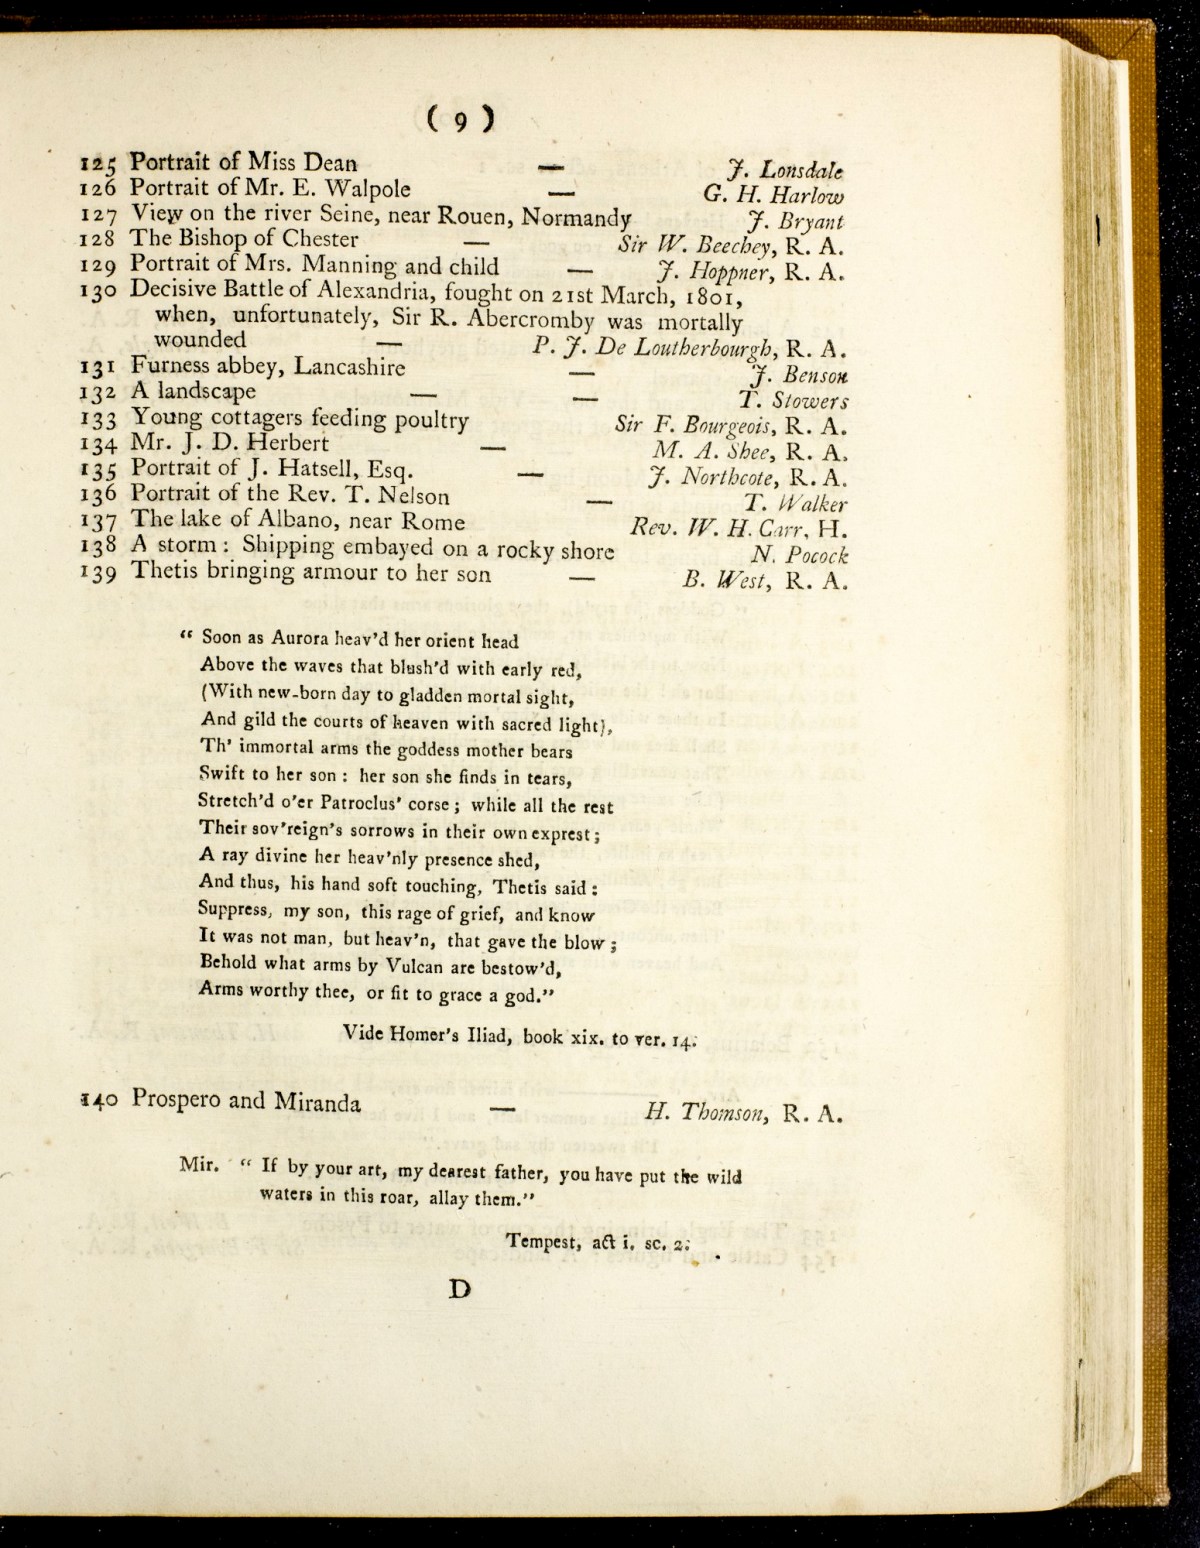 ( 9 )
125 Portrait of Miss Dean — J. Lonsdale
126 Portrait of Mr. E. Walpole — G. H. Harlow
127 View on the river Seine, near Rouen, Normandy J. Bryant
128 The Bishop of Chester — Sir W. Beechey, R. A.
129 Portrait of Mrs. Manning and child — J. Hoppner, R. A.
130 Decisive Battle of Alexandria, fought on 21st March, 1801,
when, unfortunately, Sir R. Abercromby was mortally
wounded — P. J. De Loutherbourgh, R. A.
131 Furness abbey, Lancashire — J. Benson
132 A landscape — — T. Stowers
133 Young cottagers feeding poultry Sir F. Bourgeois, R. A.
134 Mr. J. D. Herbert — M. A. Shee, R. A.
135 Portrait of J. Hatsell, Esq. — J. Northcote, R. A.
136 Portrait of the Rev. T. Nelson — T. Walker
137 The lake of Albano, near Rome Rev. W. H. Carr, H.
138 A storm : Shipping embayed on a rocky shore N. Pocock
139 Thetis bringing armour to her son — B. West, R. A.
“ Soon as Aurora heav’d her orient head
Above the waves that blush’d with early red,
(With new-born day to gladden mortal sight,
And gild the courts of heaven with sacred light),
Th’ immortal arms the goddess mother bears
Swift to her son : her son she finds in tears,
Stretch’d o’er Patroclus’ corse ; while all the rest
Their sov’reign’s sorrows in their own exprest ;
A ray divine her heav’nly presence shed,
And thus, his hand soft touching, Thetis said :
Suppress, my son, this rage of grief, and know
It was not man, but heav’n, that gave the blow ;
Behold what arms by Vulcan are bestow’d,
Arms worthy thee, or fit to grace a god.”
Vide Homer’s Iliad, book xix. to ver. 14.
140 Prospero and Miranda — H. Thomson, R. A.
Mir. “ If by your art, my dearest father, you have put the wild
waters in this roar, allay them.”
Tempest, act i. sc. 2.
D